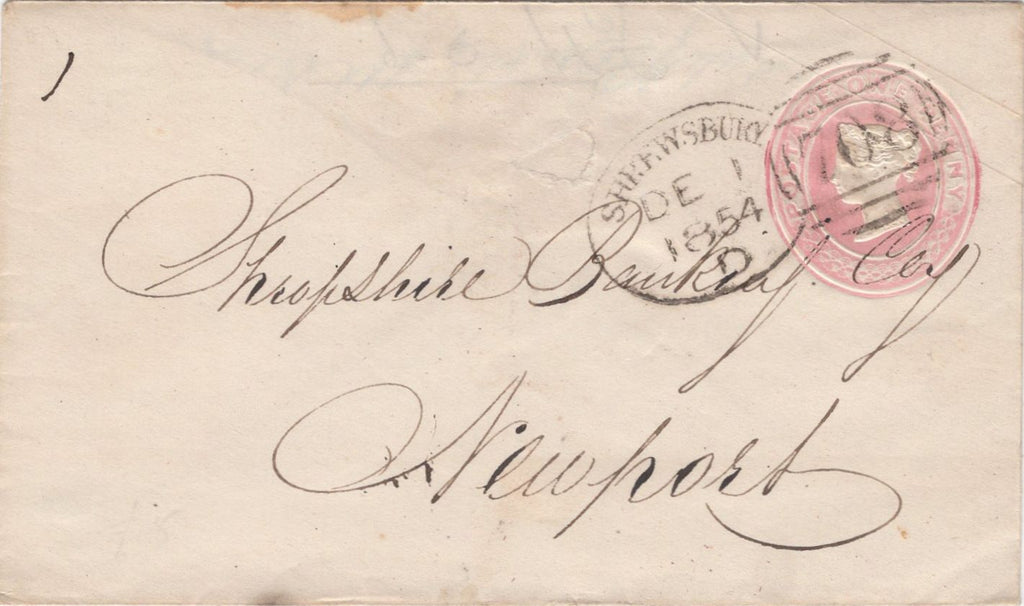 POSTAGE ONE PENNY
SHREWSBURY
DE 1
1854
D
Shropshire Banking Coy
Newport